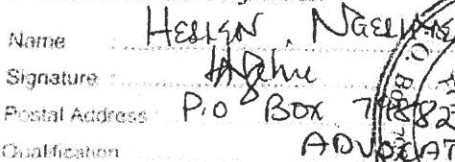 Name HELLEN NGELIME
Signature
Postal Address P.O BOX 79882
Qualification ADVOCAT